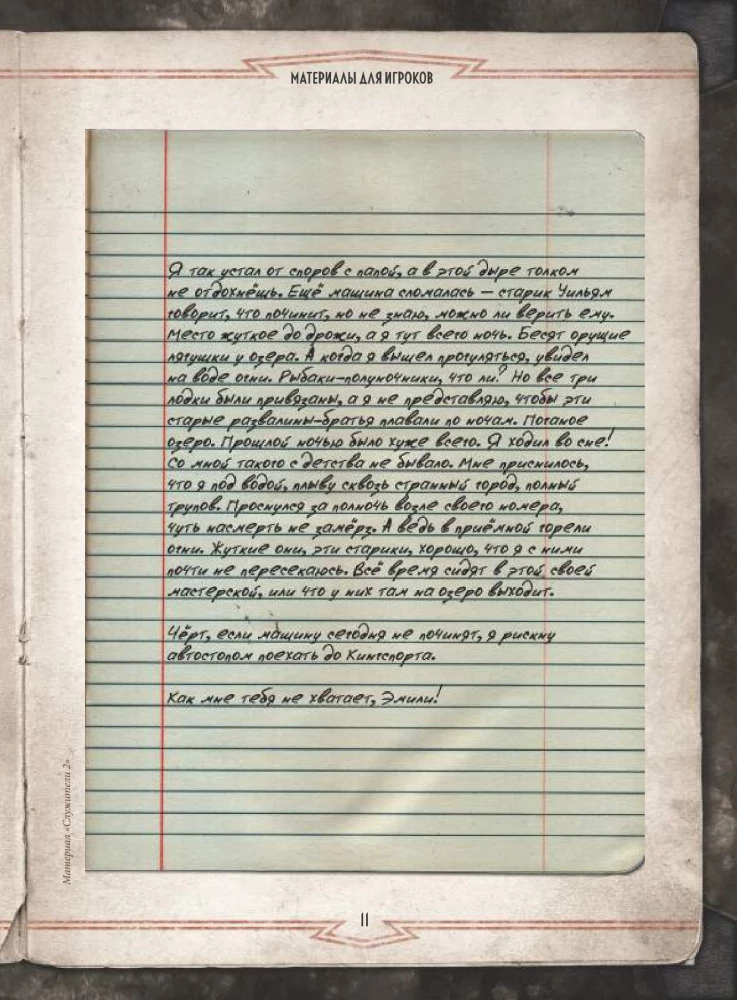 МАТЕРИАЛЫ ДЛЯ ИГРОКОВ
Я так устал от споров с папой, а в этой дыре толком
не отдохнёшь. Ещё машина сломалась — старик Уильям
говорит, что починит, но не знаю, можно ли верить ему.
Место жуткое до дрожи, а я тут всего ночь. Бесят орущие
лягушки у озера. А когда я вышел прогуляться, увидел
на воде огни. Рыбаки-полуночники, что ли? Но все три
лодки были привязаны, а я не представляю, чтобы эти
старые развалины-братья плавали по ночам. Поганое
озеро. Прошлой ночью было хуже всего. Я ходил во сне!
Со мной такого с детства не бывало. Мне приснилось,
что я под водой, плыву сквозь странный город, полный
трупов. Проснулся за полночь возле своего номера,
чуть насмерть не замёрз. А ведь в приёмной горели
огни. Жуткие они, эти старики, хорошо, что я с ними
почти не пересекаюсь. Всё время сидят в этой своей
мастерской, или что у них там на озеро выходит.
Чёрт, если машину сегодня не починят, я рискну
автостопом поехать до Кингспорта.
Как мне тебя не хватает, Эмили!
Материал «Служители 2»
11